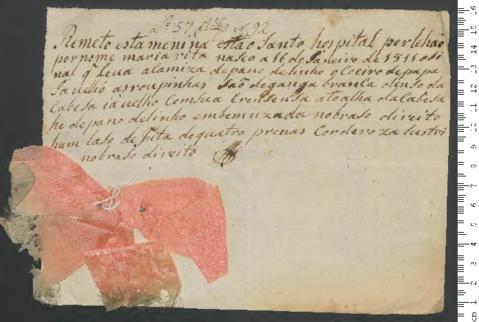 Remeto esta menina esta o Santo hospital por lehão
por nome maria rita naseo a 16 de Janeiro de 1811 osi
nal q leva a lamiza de pano de linho o Coeiro de papa
sa velho as roupinhas são de ganga branca olenso da
Cabesa ia velho Com sua Crensensa atoalha da Cabesa
he de pano de linho embemuzada no braso direito
hum laso de fita de quatro prenas Cor de roza lustri
no braso direito